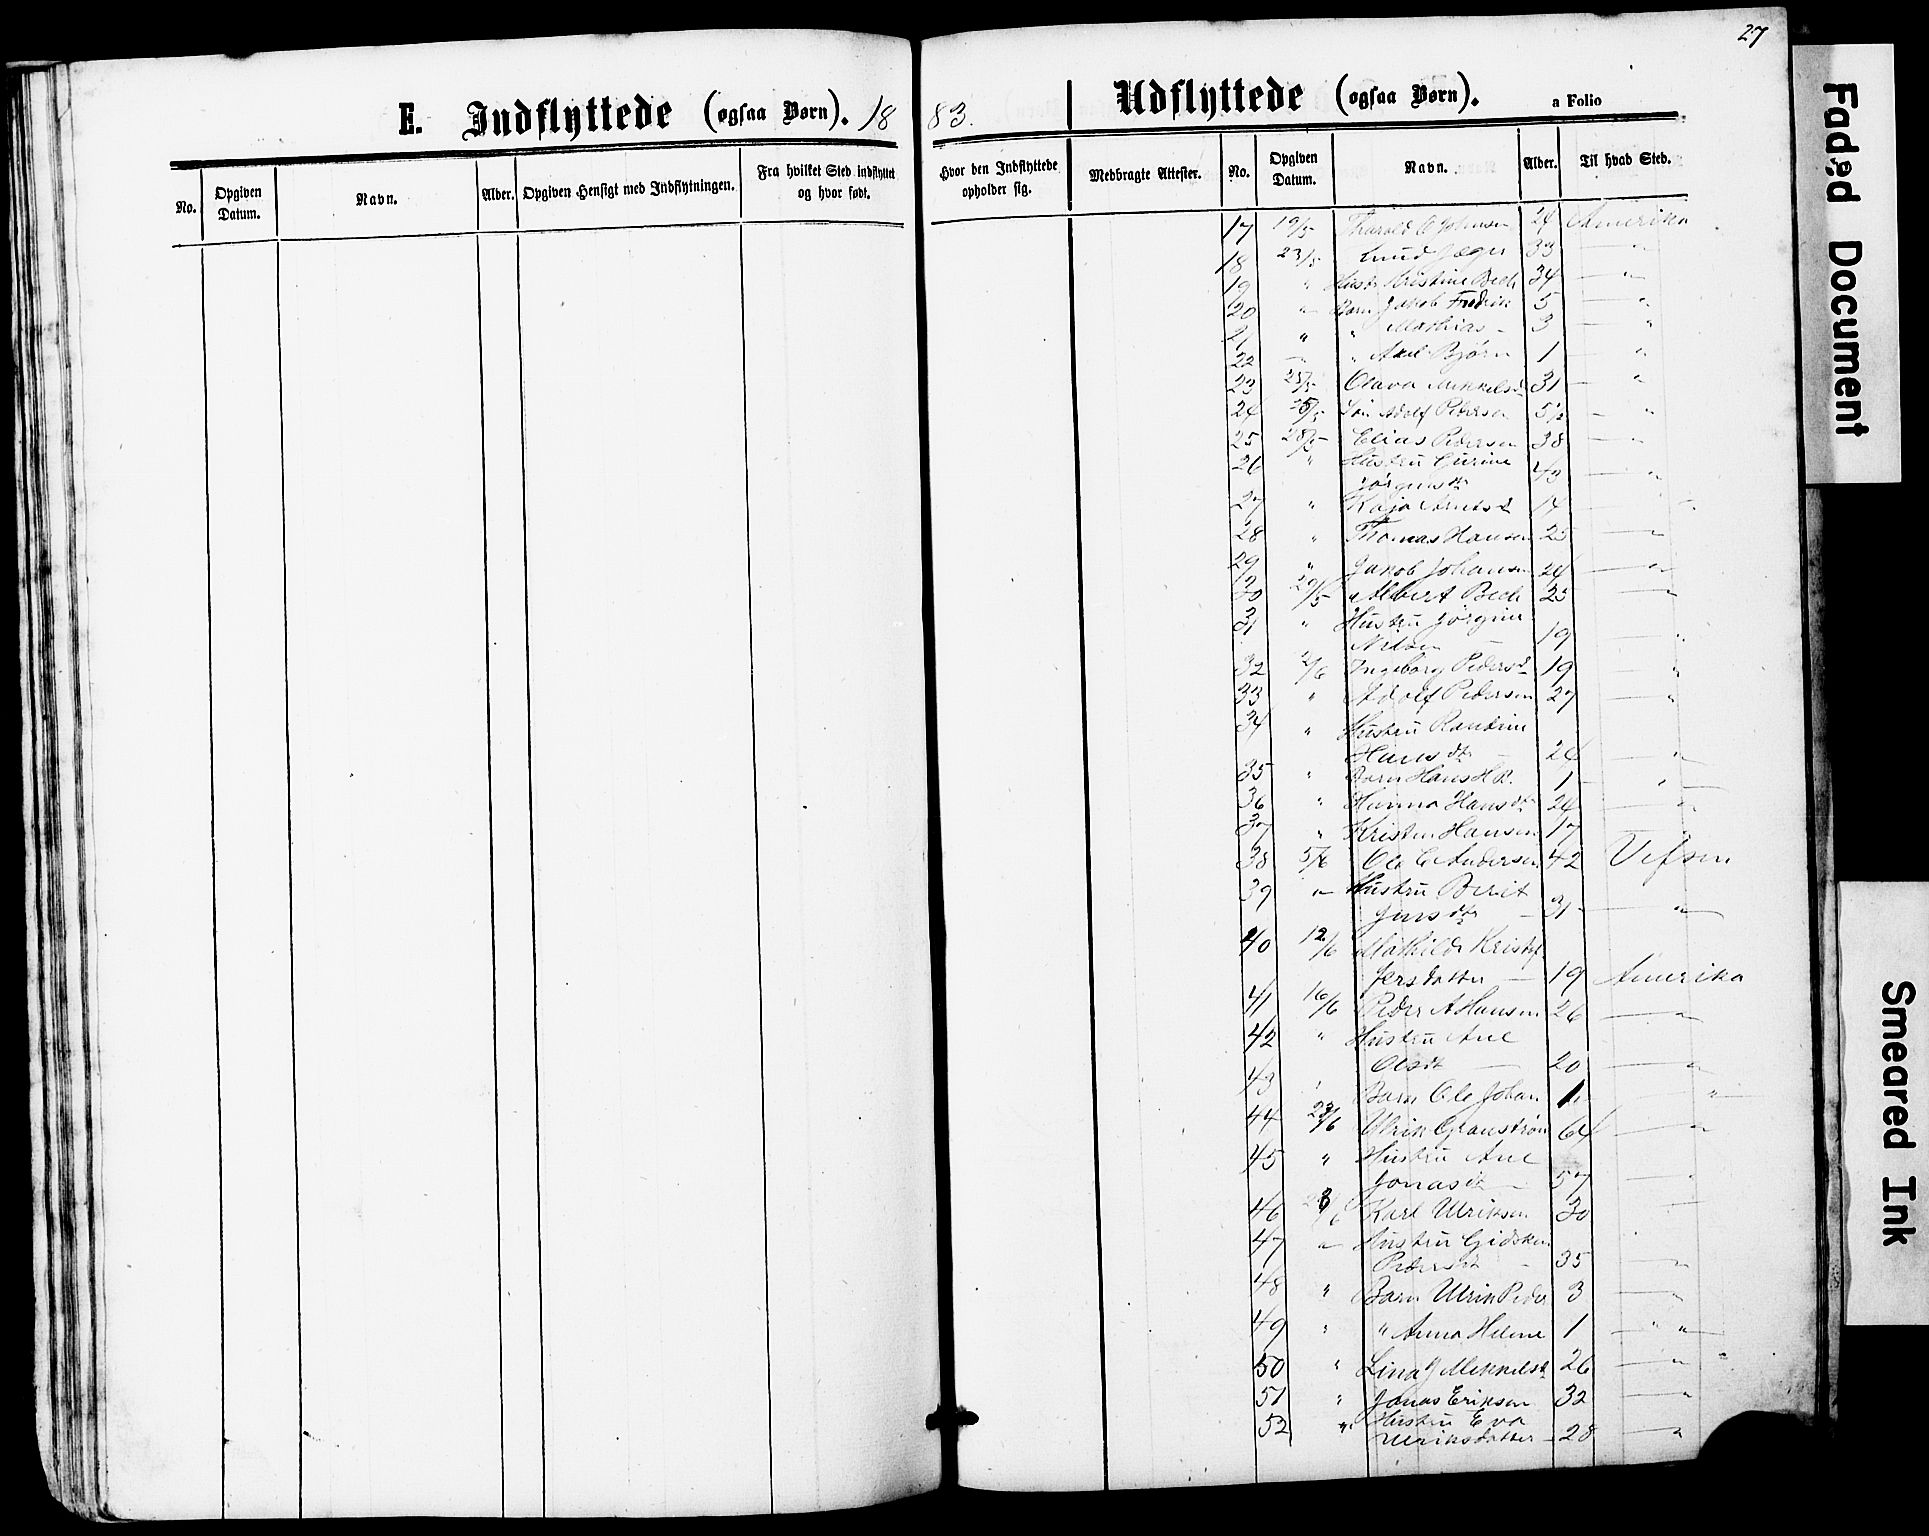 27
E. Indflyttede (ogsaa Børn). 18
83.
Udflyttede (ogsaa Børn). a Folio
No. Opgiven Datum. Navn. Alder. Opgiven Hensigt med Indflytningen. Fra hvilket Sted indflyttet og hvor født.
Hvor den Indflyttede opholder sig. Medbragte Attester. No. Opgiven Datum. Navn. Alder. Til hvad Sted.
17 19/5 Tharald O Johnsen 24 Amerika
18 23/5 Jæger 33 — " —
19 " Hustr Kristine Bech 34 — " —
20 " Barn Jakob Fredrik 5 — "
21 " " Mathias - 3 — "
22 — " Axel Bjørn 1 — "
23 25/5 Olava Mikkelsd 31 — "
24 Søn Adolf Pedersen 5½ — "
25 28/5 Elias Pedersen 38 — " —
26 " Hustru Gurine
Jørgensdtr 43 — " —
27 " Kaja 14 — "
28 " Thomas Hansen 25 — " —
29 " Jakob Johansen 24 — " —
30 29/5 Albert Bech 25 — " —
31 " Hustru Jørgine
Nilsen — 19 — " —
32 2/6 Ingeborg Pedersd 19 — "
33 " Adolf Pedersen 27 — "
34 " Hustru Randine
Hansdtr — 24 — " —
35 " Barn Hans H P. 1 — " —
36 " Hanna Hansdtr 24 — " —
37 " Kristen Hansen 17
38 5/6 Ole C Andersen 42 Vefsen
39 " Hustru Berit
Jensdtr — 31 — " —
40 12/6 Mathilde Kristof
fersdatter — 19 Amerika
41 16/6 Peder A Hansen 26 — " —
42 " Hustru Ane
Olsdt — 20 — " —
43 " Barn Ole Johan 1 — " —
44 23/6 Ulrik Granstrøm 64 — " —
45 " Hustru Ane
Jonasdt — 57 — "
46 Karl Ulriksen 30
47 " Hustru Gidsken
Pedersdt - 35 — " —
48 " Barn Ulrik Peder 3 — " —
49 " " Anna Helene 1 — " " —
50 " Lina J Mikkelsd 26 — " —
51 " Jonas Eriksen 32 — "
52 " Hustru Eva
Ulriksdatter — 28 — "
Faded Document
Smeared Ink